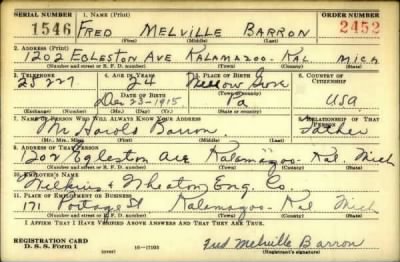 SERIAL NUMBER 1. NAME (Print) ORDER NUMBER
1546 FRED MELVILLE BARRON 2452
(First) (Middle) (Last)
2. ADDRESS (Print)
1202 EGLESTON AVE KALAMAZOO - KAL MICH
(Number and street or R. F. D. number) (Town) (County) (State)
3. TELEPHONE 4. AGE IN YEARS 5. PLACE OF BIRTH 6. COUNTRY OF CITIZENSHIP
25227 24 Willow Grove
DATE OF BIRTH (Town or county)
Dec 23-1915 Pa USA
(Exchange) (Number) (Mo.) (Day) (Yr.) (State or country)
7. NAME OF PERSON WHO WILL ALWAYS KNOW YOUR ADDRESS RELATIONSHIP OF THAT PERSON
Mr Harold Barron Father
(Mr., Mrs., Miss) (First) (Middle) (Last)
9. ADDRESS OF THAT PERSON
1202 Egleston Ave Kalamazoo - Kal Mich
(Number and street or R. F. D. number) (Town) (County) (State)
10. EMPLOYER'S NAME
& Wheaton Eng. Co.
11. PLACE OF EMPLOYMENT OR BUSINESS
171 Portage St Kalamazoo - Kal Mich
(Number and street or R. F. D. number) (Town) (County) (State)
I AFFIRM THAT I HAVE VERIFIED ABOVE ANSWERS AND THAT THEY ARE TRUE.
REGISTRATION CARD
D. S. S. Form 1 16-17105 Fred Melville Barron
(Registrant's signature)